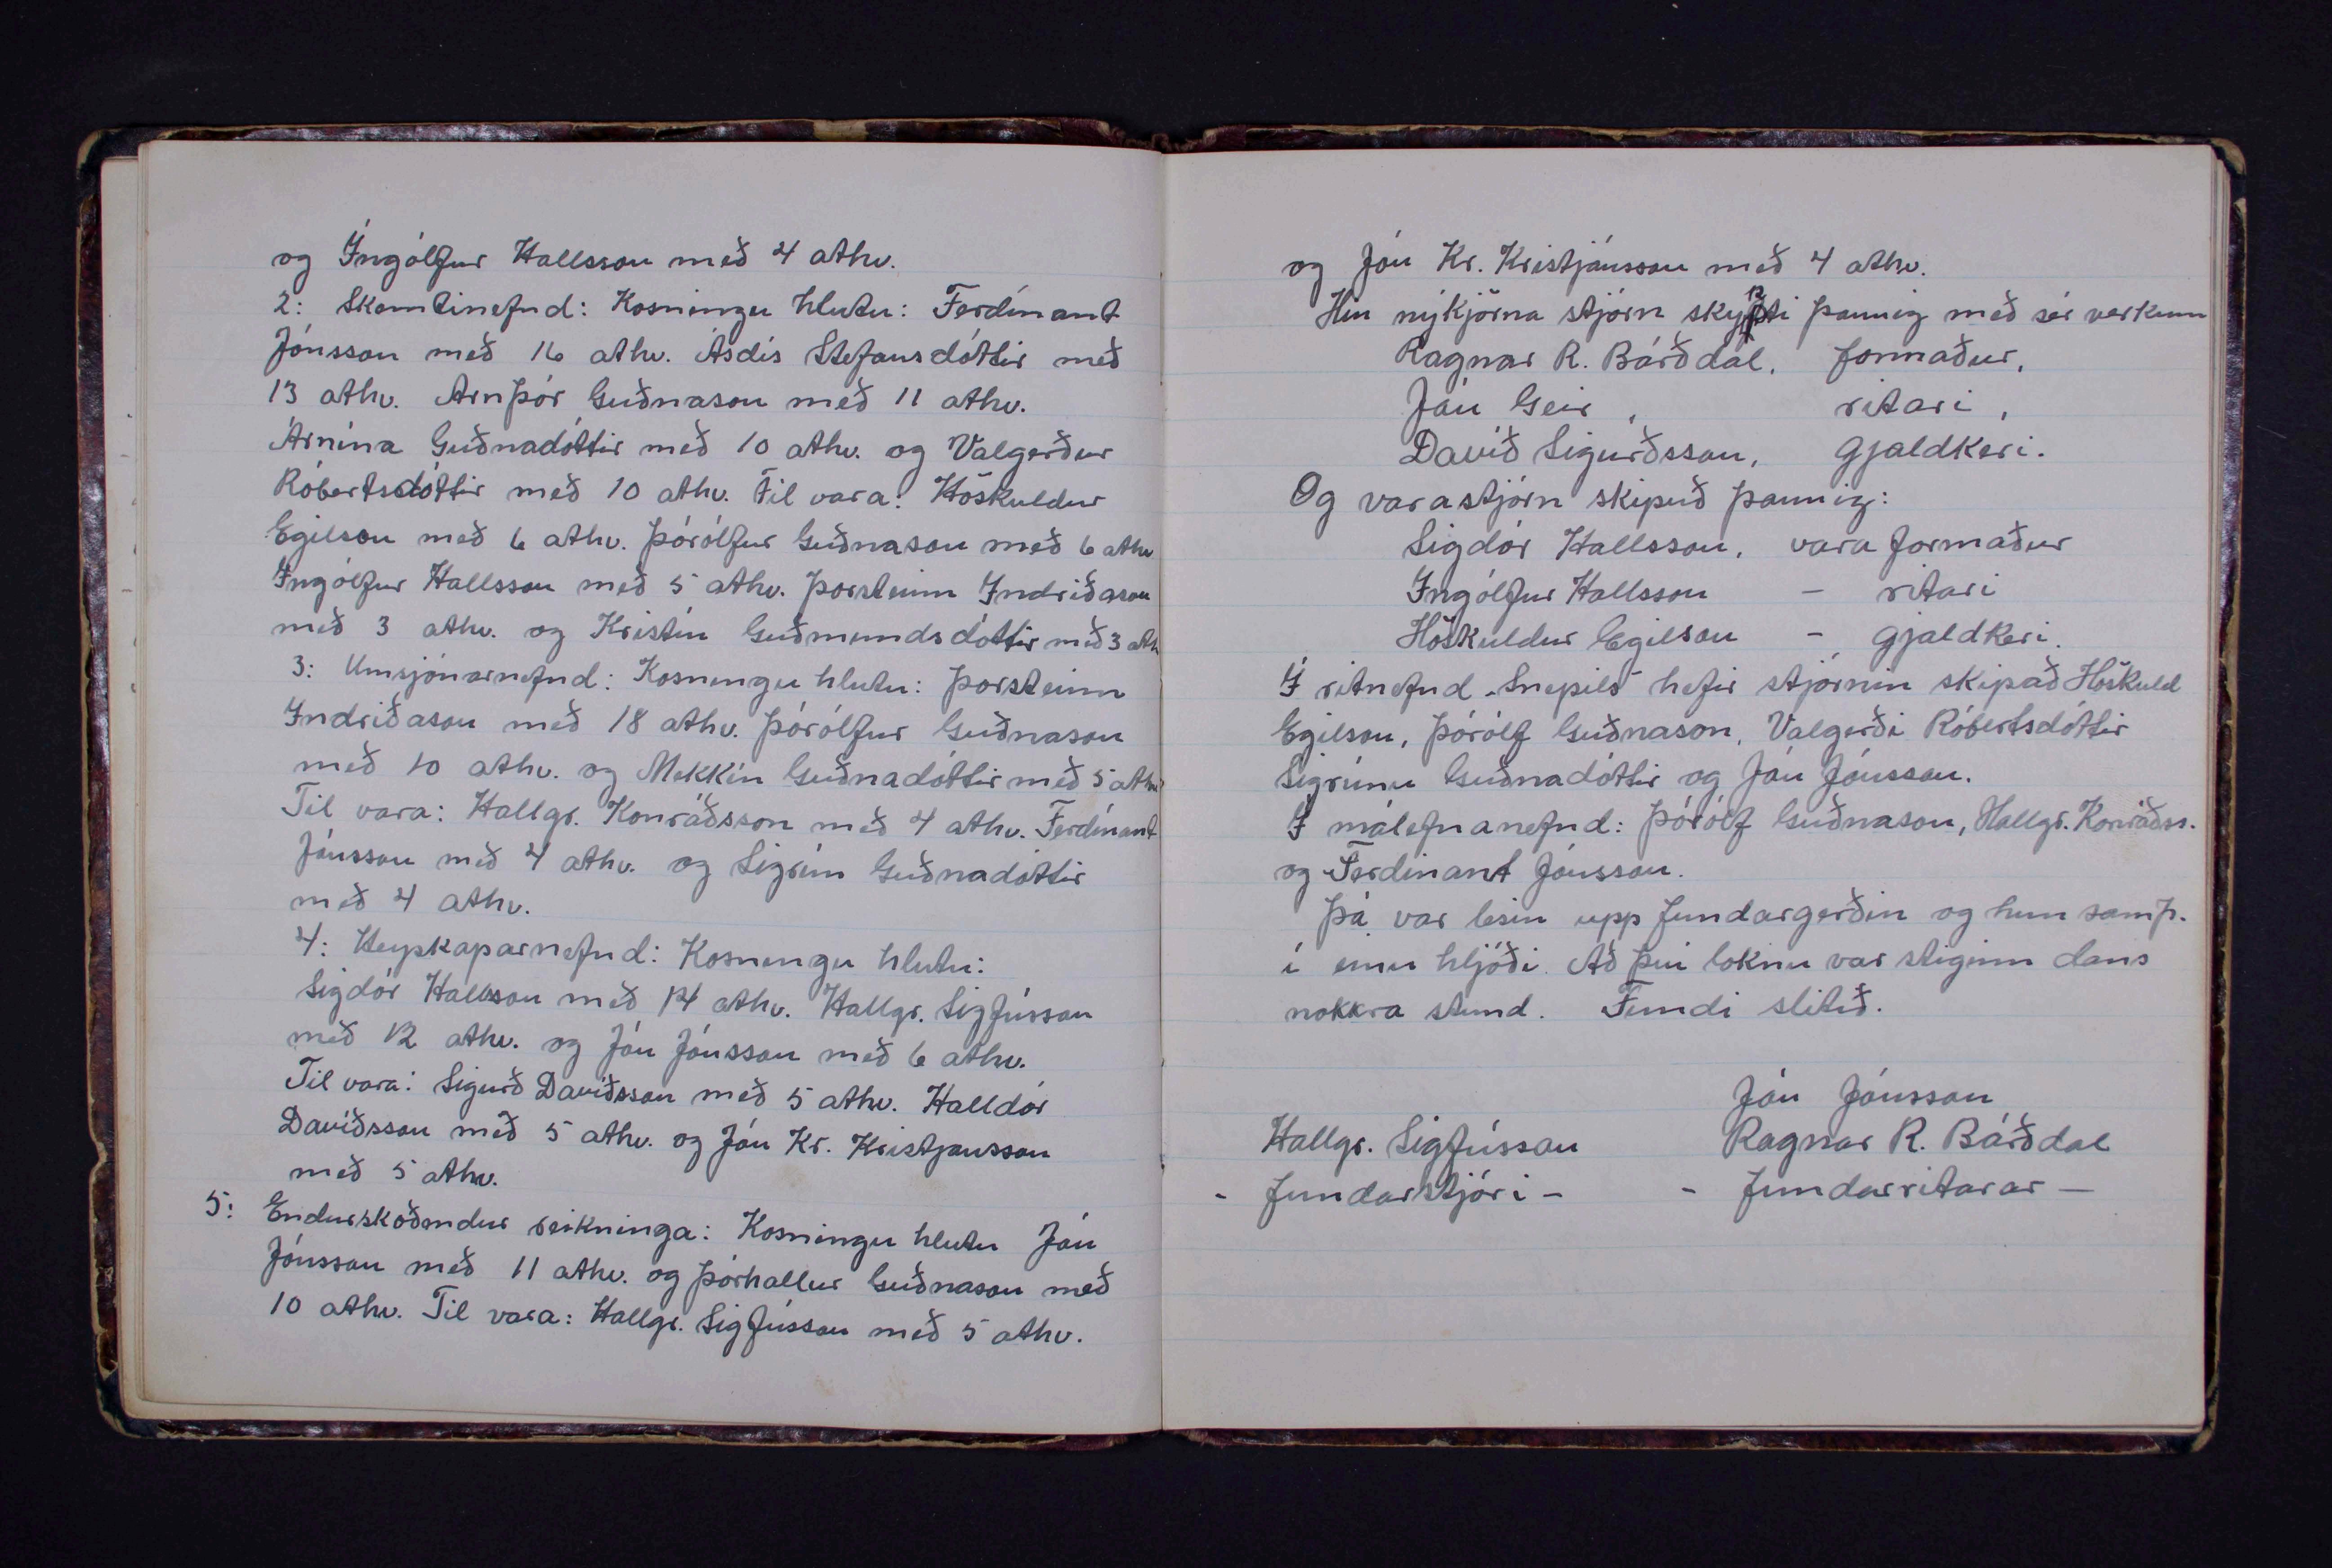 og Ingólfur Hallsson með 4 atkv.
2: Skemtinefnd: Kosningu hlutu: Ferdínant
Jónsson með 16 atkv. Ásdís Stefansdóttir með
13 atkv. Arnþór Guðnason með 11 atkv.
Árnína Guðnadóttir með 10 atkv. og Valgerður
Róbertsdóttir með 10 atkv. Til vara: Höskuldur
Egilson með 6 atkv. Þórólfur Guðnason með 6 atkv
Ingólfur Hallsson með 5 atkv. Þorsteinn Indriðason
með 3 atkv. og Kristín Guðmundsdóttir með 3 atk
3: Umsjónarnefnd: Kosningu hlutu: Þorsteinn
Indriðason með 18 atkv. Þórólfur Guðnason
með 10 atkv. og Mekkín Guðnadóttir með 5 atkv
Til vara: Hallgr. Konráðsson með 4 atkv. Ferdínant
Jónsson með 4 atkv. og Sigrún Guðnadóttir
með 4 atkv.
4: Heyskaparnefnd: Kosningu hlutu:
Sigdór Hallsson með 14 atkv. Hallgr. Sigfússon
með 12 atkv. og Jón Jónsson með 6 atkv.
Til vara: Sigurð Davíðsson með 5 atkv. Halldór
Davíðsson með 5 atkv. og Jón Kr. Kristjansson
með 5 atkv.
5: Endurskoðendur reikninga: Kosningu hlutu Jón
Jónsson með 11 atkv. og Þórhallur Guðnason með
10 atkv. Til vara: Hallgr. Sigfússon með 5 atkv.
og Jón Kr. Kristjánsson með 4 atkv.
Hin nýkjörna stjórn skypti þannig með sér verkum
Ragnar R. Bárðdal, formaður,
Jón Geir, ritari,
Davíð Sigurðsson, gjaldkeri.
Og varastjórn skipuð þannig:
Sigdór Hallsson, vara formaður
Ingólfur Hallsson - ritari
Höskuldur Egilson - gjaldkeri.
Í ritnefnd „Snepils" hefir stjórnin skipað Höskuld
Egilson, Þórólf Guðnason, Valgerði Róbertsdóttir
Sigrúnu Guðnadóttir og Jón Jónsson.
Í málefnanefnd: Þórólf Guðnason, Hallgr. Konráðss.
og Ferdinant Jónsson.
Þá var lesin upp fundargerðin og hun samþ.
í einu hljóði. Að því loknu var stiginn dans
nokkra stund. Fundi slitið.
Jón Jónsson
Hallgr. Sigfússon Ragnar R. Bárðdal
- fundarstjóri - - fundarritarar -